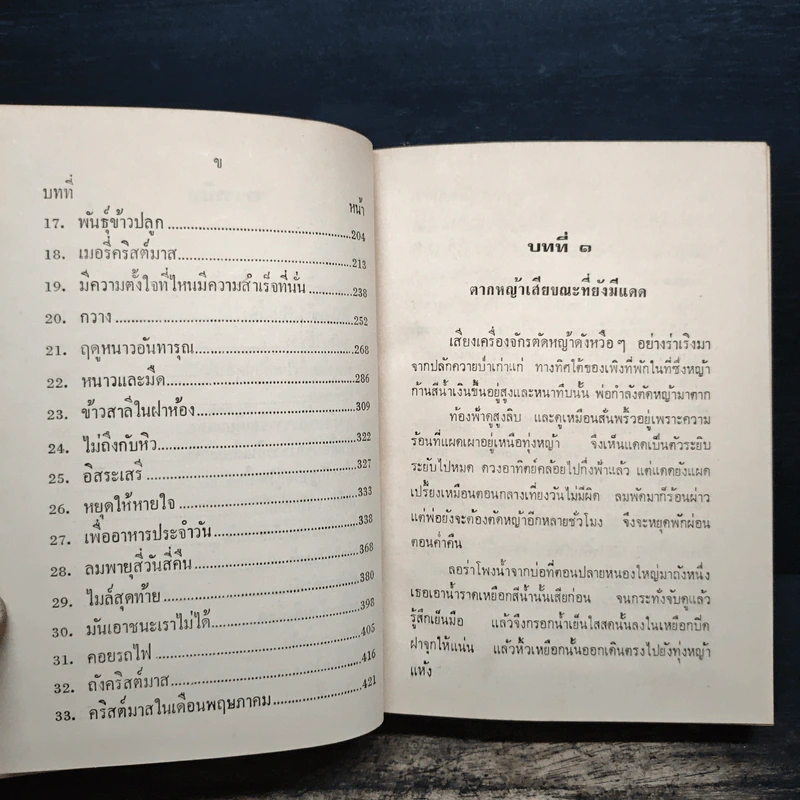 ข
บทที่ หน้า
17. พันธุ์ข้าวปลูก 204
18. เมอรี่คริสต์มาส 213
19. มีความตั้งใจที่ไหนมีความสำเร็จที่นั่น 238
20. กวาง 252
21. ฤดูหนาวอันทารุณ 268
22. หนาวและมืด 286
23. ข้าวสาลีในฝาห้อง 309
24. ไม่ถึงกับหิว 322
25. อิสระเสรี 327
26. หยุดให้หายใจ 333
27. เพื่ออาหารประจำวัน 338
28. ลมพายุสี่วันสี่คืน 368
29. ไมล์สุดท้าย 380
30. มันเอาชนะเราไม่ได้ 398
31. คอยรถไฟ 405
32. ถังคริสต์มาส 416
33. คริสต์มาสในเดือนพฤษภาคม 421
บทที่ ๑
ตากหญ้าเสียขณะที่ยังมีแดด
เสียงเครื่องจักรตัดหญ้าดังหวือ ๆ อย่างร่าเริงมา
จากปลักควายบ้าเก่าแก่ ทางทิศใต้ของเพิงที่พักในที่ซึ่งหญ้า
ก้านสีน้ำเงินขึ้นอยู่สูงและหนาทึบนั้น พ่อกำลังตัดหญ้ามาตาก
ท้องฟ้าดูสูงลิบ และดูเหมือนสั่นพริ้วอยู่เพราะความ
ร้อนที่แผดเผาอยู่เหนือทุ่งหญ้า จึงเห็นแดดเป็นตัวระยิบ
ระยับไปหมด ดวงอาทิตย์คล้อยไปกึ่งฟ้าแล้ว แต่แดดยังแผด
เปรี้ยงเหมือนตอนกลางเที่ยงวันไม่มีผิด ลมพัดมาก็ร้อนผ่าว
แต่พ่อยังจะต้องตัดหญ้าอีกหลายชั่วโมง จึงจะหยุดพักผ่อน
ตอนค่ำคืน
ลอร่าโพงน้ำจากบ่อที่ตอนปลายหนองใหญ่มาถังหนึ่ง
เธอเอาน้ำราดเหยือกสีน้ำนั้นเสียก่อน จนกระทั่งจับดูแล้ว
รู้สึกเย็นมือ แล้วจึงกรอกน้ำเย็นใสสดนั้นลงในเหยือกปิด
ฝาจุกให้แน่น แล้วหิ้วเหยือกนั้นออกเดินตรงไปยังทุ่งหญ้า
แห้ง